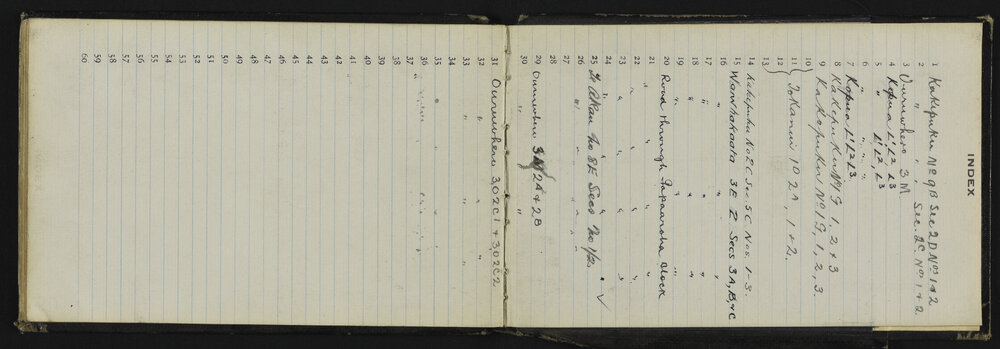 INDEX
1 Kakepuku No 9B Sec 2D Nos 1 & 2
2 " " , Sec. 2C Nos 1 & 2
3 Ouruwhero 3 M
4 Kopua 1' L2, L3
5 " 1' L2, L3
6 " " " "
7 Kopua 1' L2 L3
8 Kakepuku No 1 G 1, 2 & 3
9 Kakepuku No 1 G, 1, 2, 3.
10
11 Tokanui 1D 2A, 1 & 2.
12
13
14 Kakepuku No 2C Sec 5C Nos. 1-3.
15 Wharekaata 3E 2 Secs 3A, B, & C
16 " " "
17 " " "
18 " " "
19 " " "
20 Road through Paparoha Block
21 " " "
22 " " "
23 " " "
24 " " "
25 No 8E Secs No 1/2. ✓
26 " " "
27
28
29 Ouruwhero 3 2A & 2B
30 " "
31 Ouruwhero 3,02C1 & 3,02C2
32 " "
33 " "
34
35
36
37
38
39
40
41
42
43
44
45
46
47
48
49
50
51
52
53
54
55
56
57
58
59
60